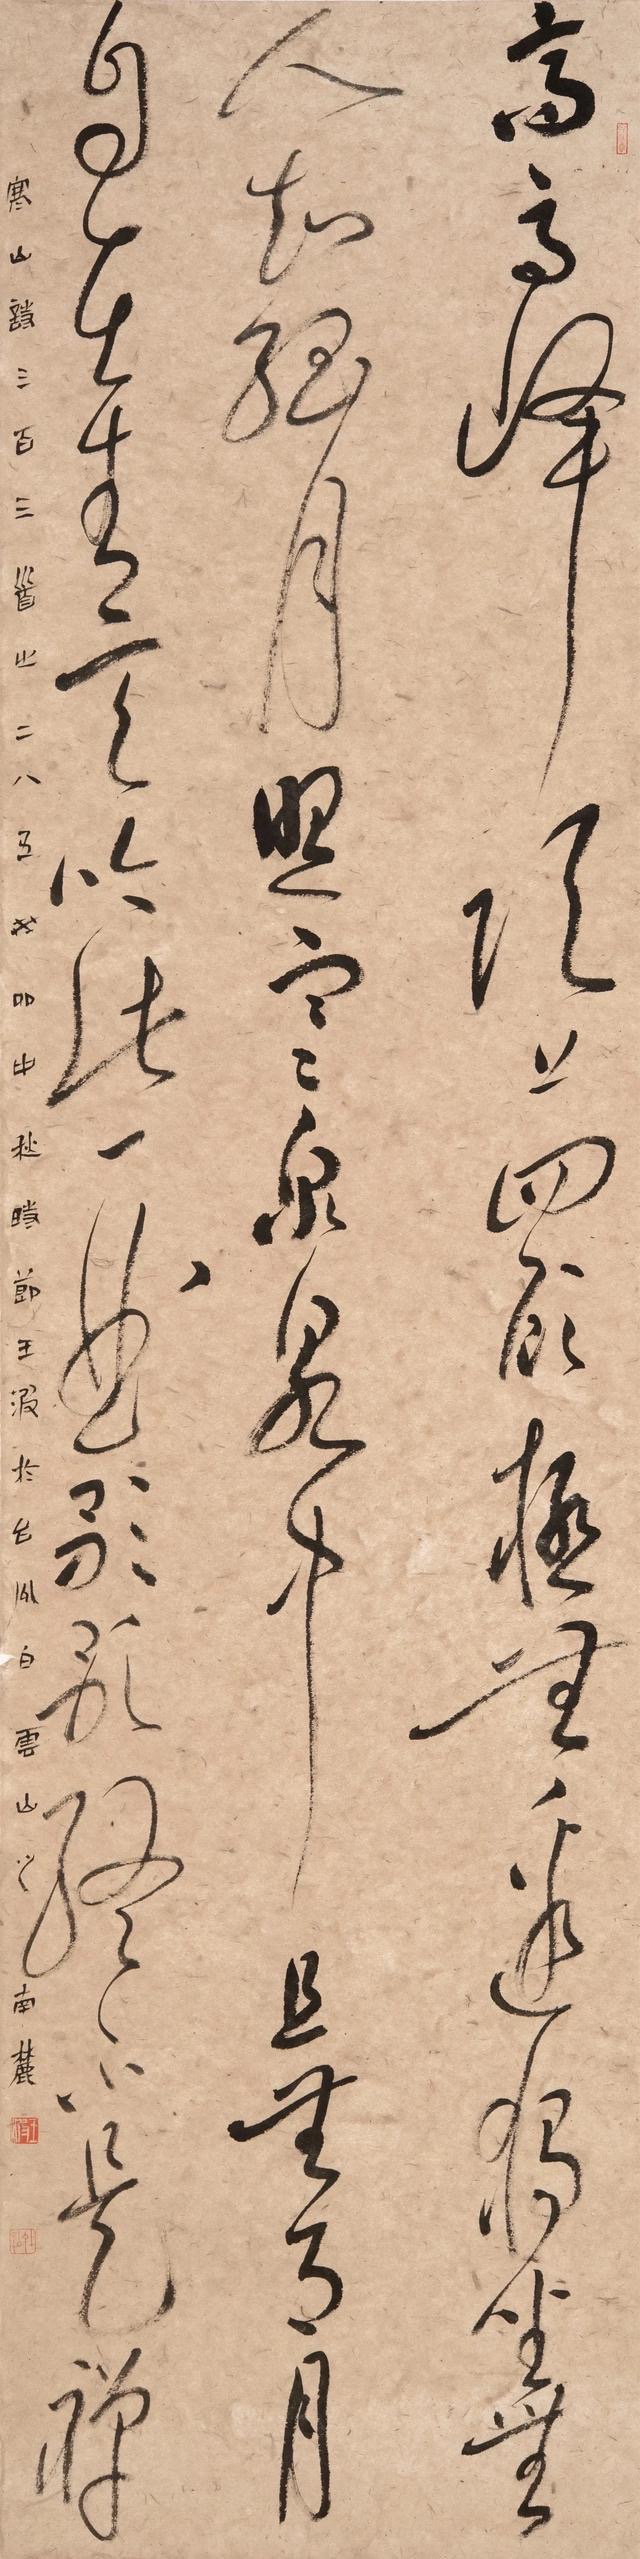 高高峰頂上四顧極無邊獨坐無
人知孤月照寒泉泉中且無月月
自在青天吟此一曲歌歌終不是禪
寒山詩三百三首之二八五癸卯中秋時節王於台州白雲山之南麓